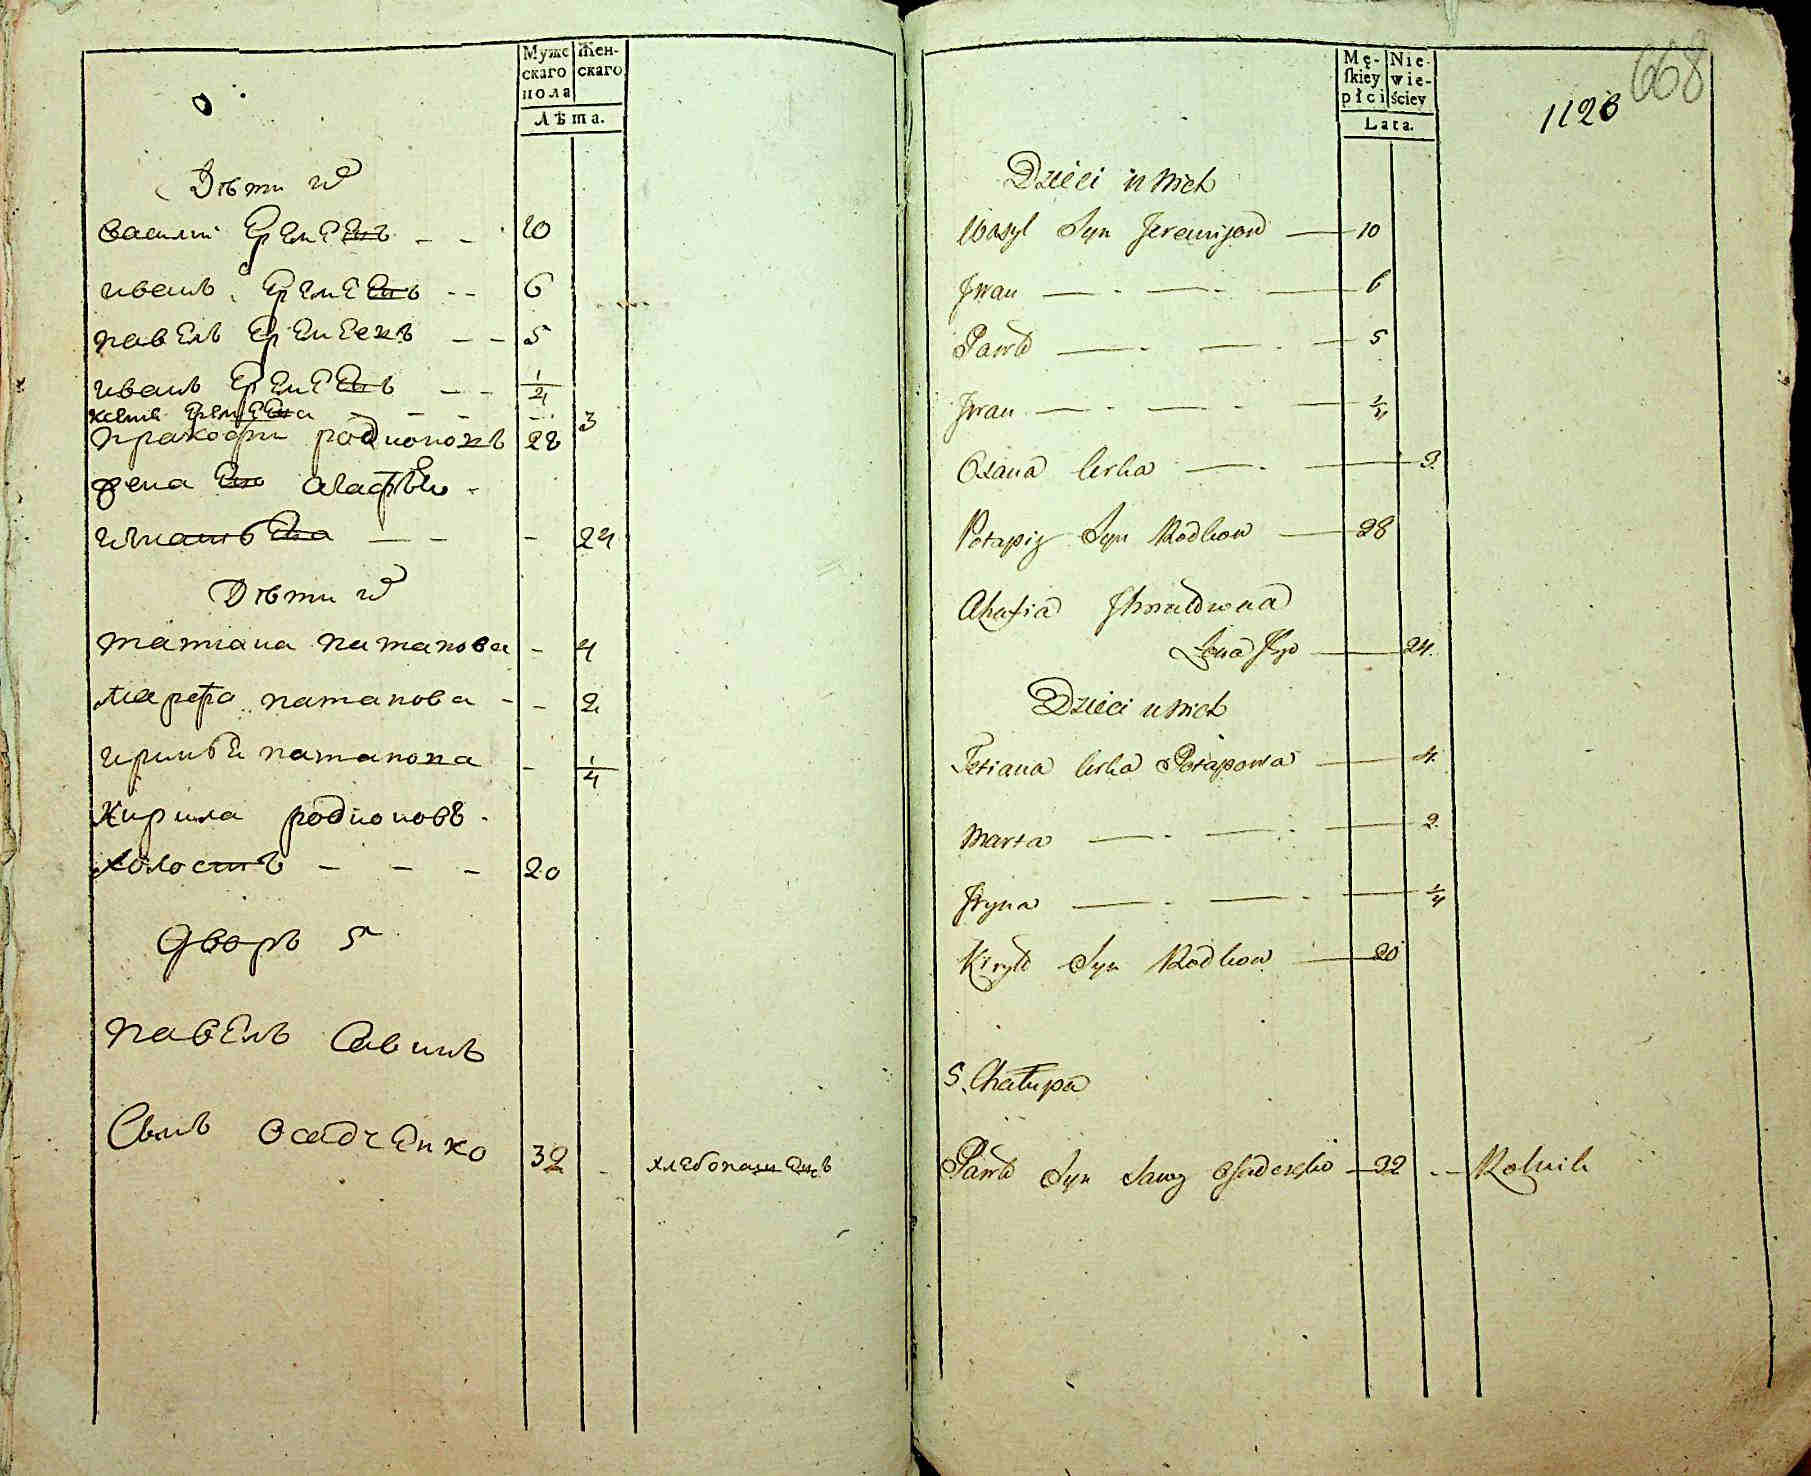 Муже
скаго
пола
Жен-
скаго
Лѣта.
Дѣти их
василий Еремеевъ - - 10
иванъ Еремеевъ - - 6
павелъ Еремеевъ - - 5
иванъ Еремеевъ - - 1/4
Еремеева - - - 3
родионовъ 28
жена Его Агафья
- - - 24
Дѣти их
татиана патапова - 4
Марфа патапова - - 2
патапова - 1/4
Кирила родионовъ
холостъ - - - 20
Дворъ 5
павелъ Савинъ
Сынъ Осадченко 32 - хлебопашецъ
668
1126
Mę-
skiey
płci
Nie-
wie-
ściey
Lata.
Dzieci u nich
Wasyl Syn Jeremijow — 10
Jwan — . — . — 6
Paweł — . — . — 5
Jwan — . — . — 1/4
Oxana Corka — . — 3.
Potapiy Syn Rodkow — 28
Ahafia
Żona Jego — 24.
Dzieci u nich
Tetiana Corka Potapowa — 4.
Marta — . — . — 2.
Jryna — . — . — 1/4
Kiryło Syn Rodkow — 20
5. Chałupa
Paweł Syn Sawy Osadczęko — 32 - - Rolnik